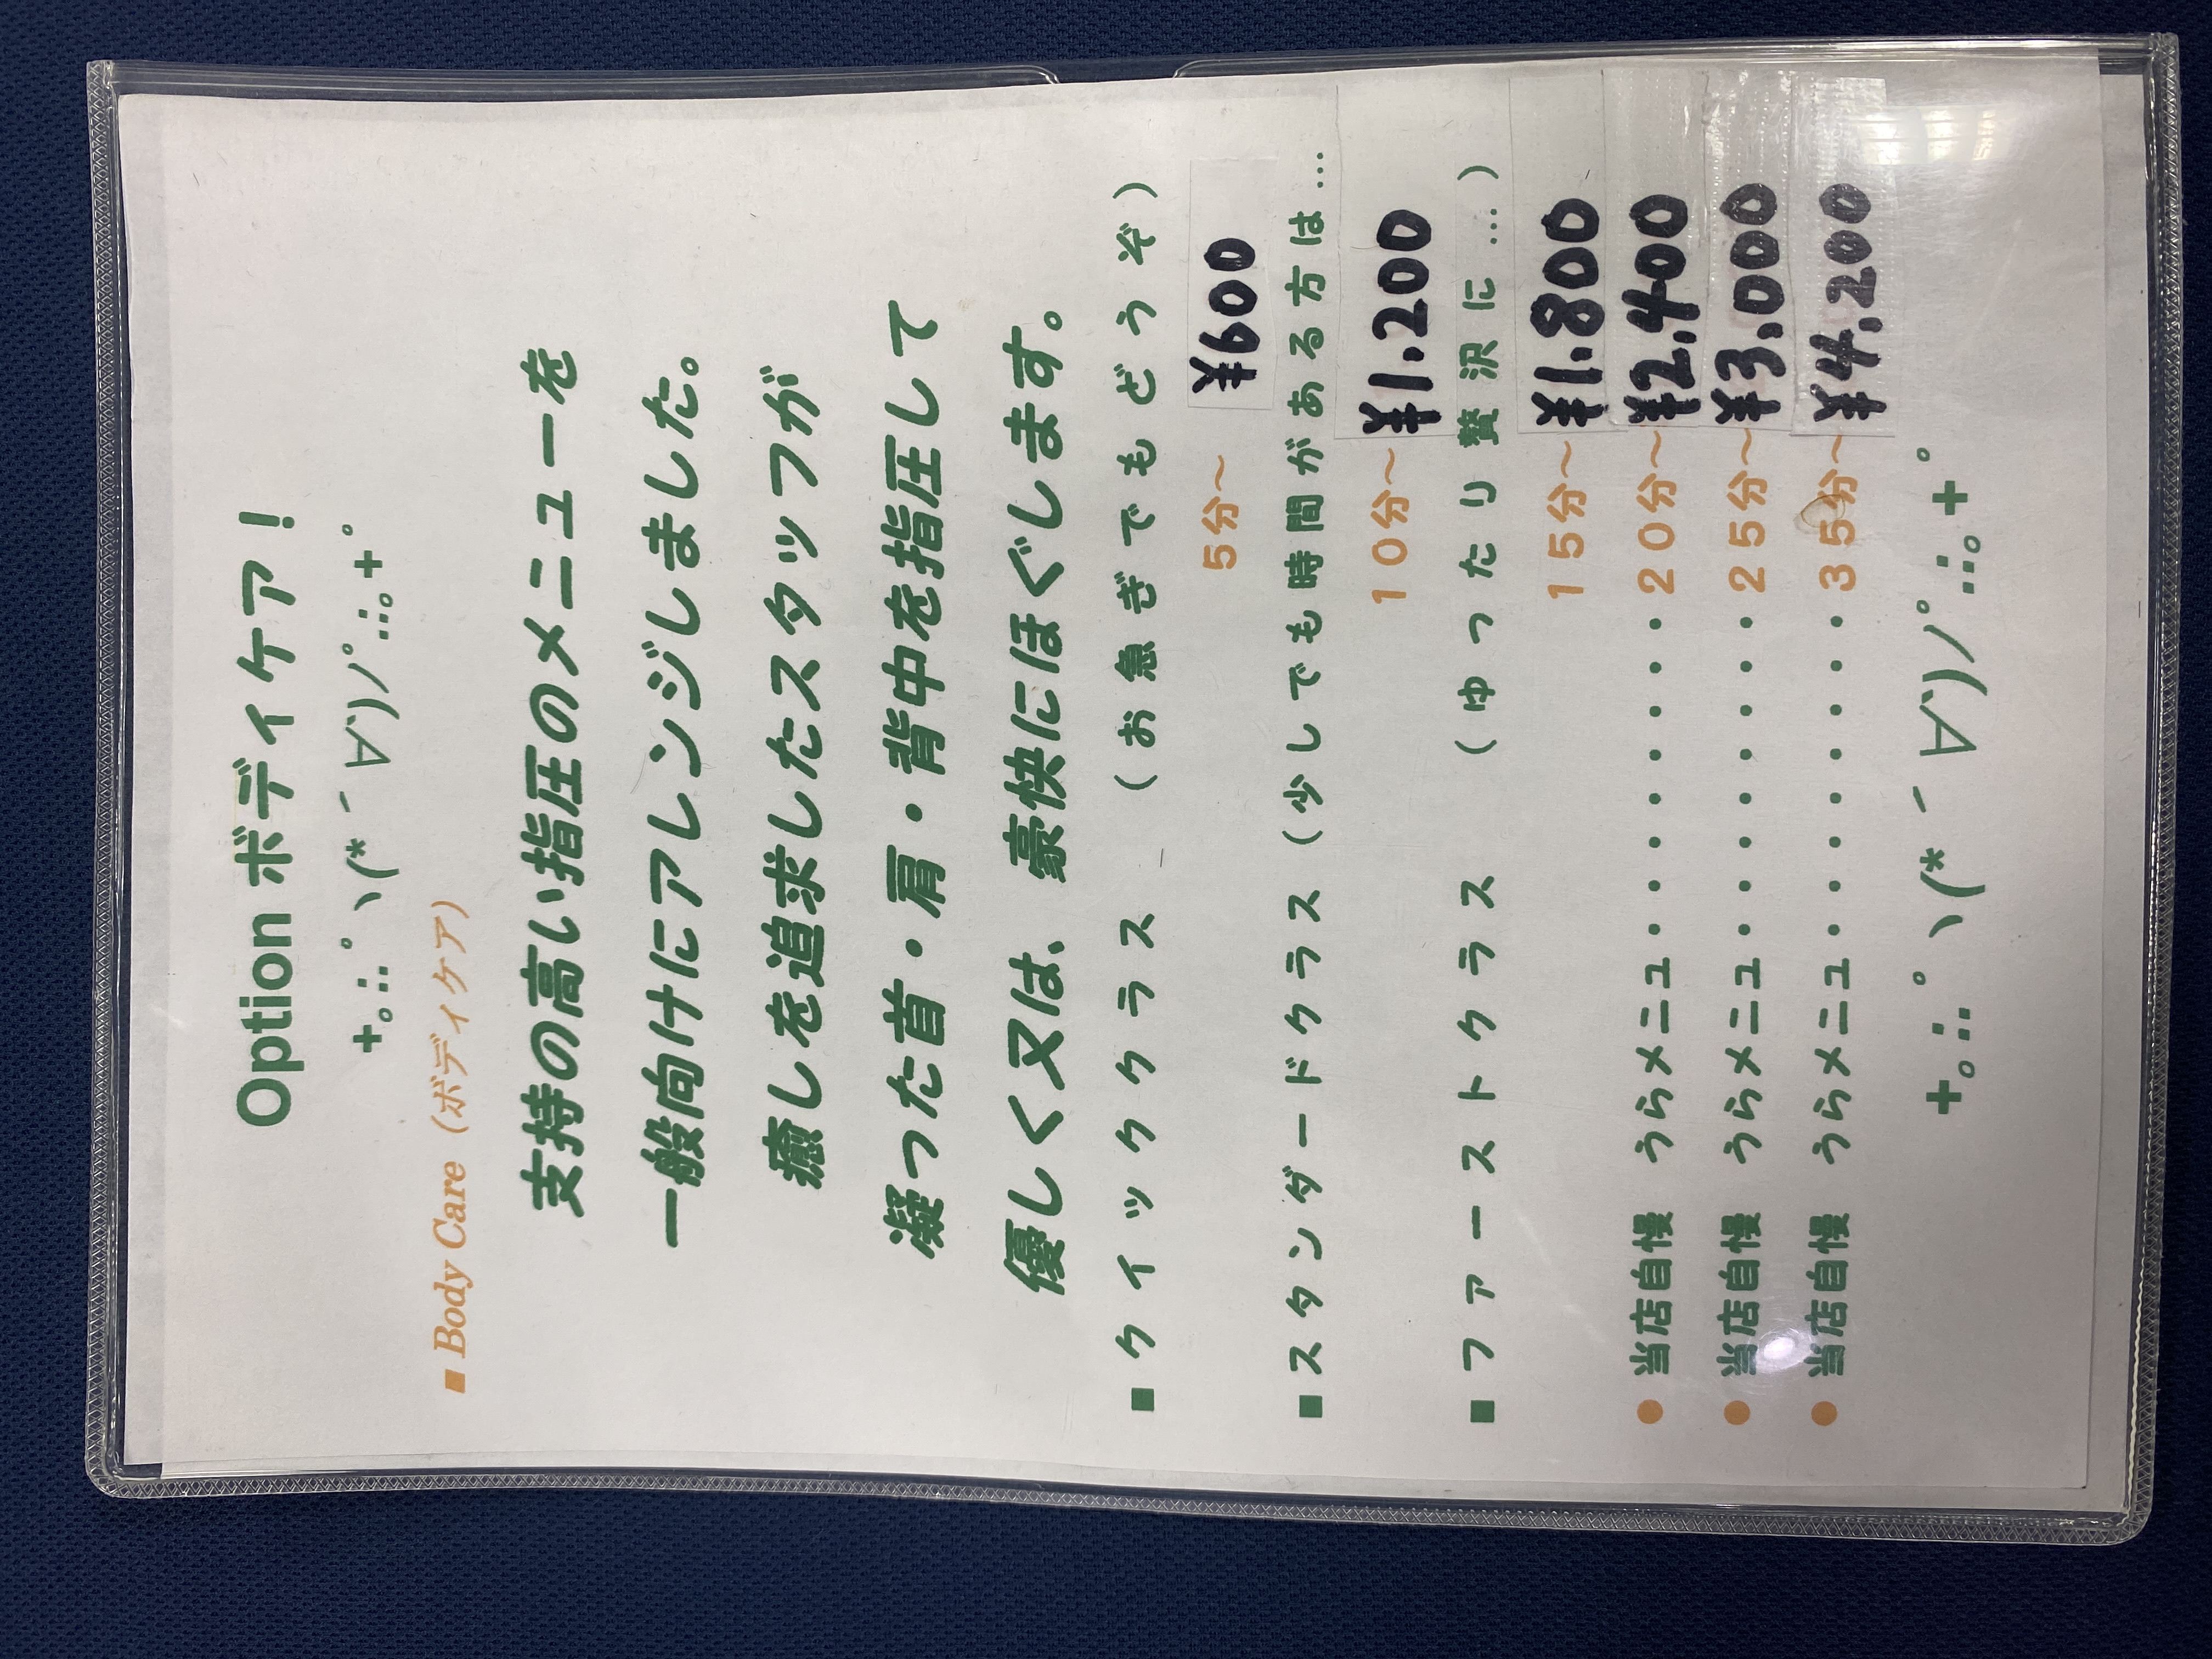 Option ボディケア！
+｡.::ﾟヽ(*´∀`)ﾉﾟ.::｡+ﾟ
■ Body Care（ボディケア）
支持の高い指圧のメニューを
一般向けにアレンジしました。
癒しを追求したスタッフが
凝った首・肩・背中を指圧して
優しく又は、豪快にほぐします。
■ クイッククラス （お急ぎでもどうぞ）
5分～ ¥600
■ スタンダードクラス（少しでも時間がある方は…
10分～ ¥1.200
■ ファーストクラス （ゆったり贅沢に…）
15分～ ¥1.800
● 当店自慢 うらメニュー・・・・・・・20分～ ¥2.400
● 当店自慢 うらメニュー・・・・・・・25分～ ¥3.000
● 当店自慢 うらメニュー・・・・・・・35分～ ¥4.200
+｡.::ﾟヽ(*´∀`)ﾉﾟ.::｡+ﾟ